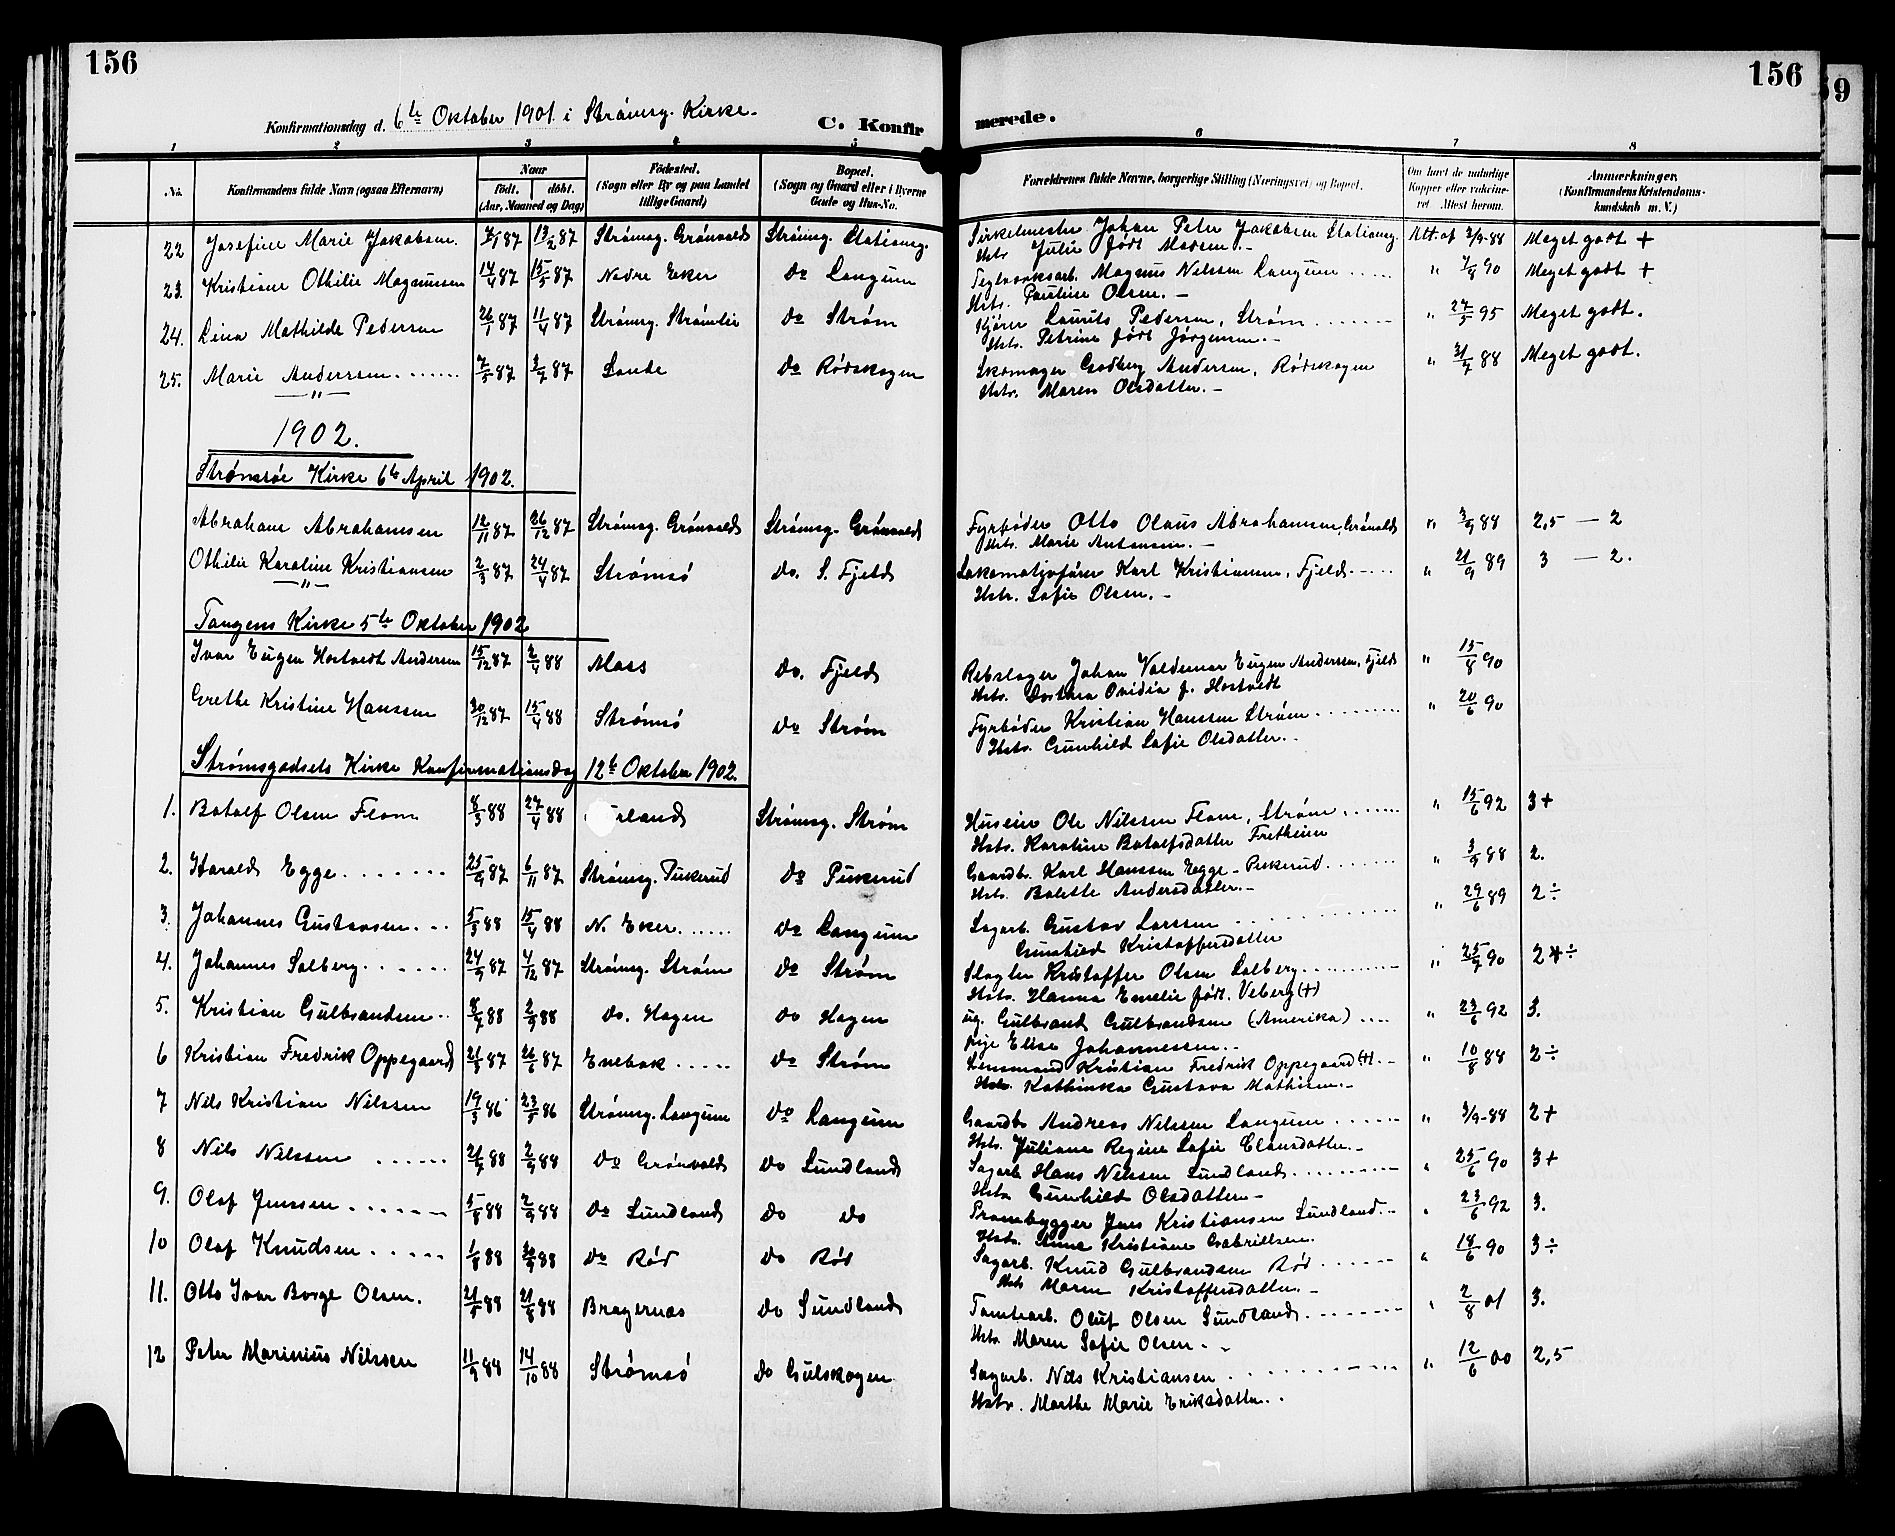 156
156
59
Konfirmationsdag d. 6te Oktober 1901 i Strømsg. Kirke.
C. Konfirmerede.
1 2 3 4 5 6 7 8
No. Konfirmandens fulde Navn (ogsaa Efternavn) Naar født. døbt. (Aar, Maaned og Dag) Fødested. (Sogn eller By og paa Landet tillige Gaard) Bopæl. (Sogn og Gaard eller i Byerne Gade og Hus-No. Forældrenes fulde Navne, borgerlige Stilling (Næringsvei) og Bopæl. Om havt de naturlige Kopper eller vakcineret. Attest herom. Anmærkninger. (Konfirmandens Kristendomskundskab m. V.)
22 Josefine Marie Jakobsen. 13/2 87 Strømsg. Grønvold Strømsg. Stationsg. Sirkelmester Johan Peter Jakobsen Stationsg. Att. af 3/9-88 Meget godt +
Hstr. Julie født Madsen. -
23. Kristiane Othilie Magnussen 14/4 87 15/5 87 Nedre Eker do Langum Teglverksarb. Magnus Nilssen Langum ..... " 7/8 90 Meget godt +
Hstr. Pauline Olsen. -
24. Lina Mathilde Pedersen 26/1 87 11/4 87 Strømsg. Strømlie do Strøm Kjører Laurits Pedersen, Strøm ....... " 27/5 95 Meget godt.
Hstr. Petrine født Jørgensen. -
25. Marie Anderssen....... 7/5 87 3/7 87 Sande do Rødskogen Skomager Godberg Andersen, Rødskogen " 31/7 88 Meget godt.
Hstr. Maren Olsdatter. -
- " -
1902.
Strømsøe Kirke 6te April 1902.
Abraham Abrahamsen 12/11 87 26/12 87 Strømsg. Grønvold Strømsg. Grønvold Fyrbøder Otto Olaus Abrahamsen, Grønvold " 3/9 88 2,5 - 2
Hstr. Marie Antonsen. -
Othilie Karoline Kristiansen 2/3 87 24/4 87 Strømsø do. S. Fjeld Lokomotivfører Karl Kristiansen, Fjeld ..... " 21/9 89 3 - 2.
- " - Hstr. Sofie Olsen. -
Tangens Kirke 5te Oktober 1902
Ivar Eugen Hostvedt Andersen 15/12 87 2/4 88 Moss do. Fjeld Rebslager Johan Valdemar Eugen Andersen, Fjeld " 15/8 90
Hstr. Dorthea Ovidia f. Hostvedt
Grethe Kristine Hanssen 30/12 87 15/4 88 Strømsø do Strøm Fyrbøder Kristian Hanssen Strøm ......... " 20/6 90
Hstr. Gunhild Sofie Olsdatter. -
Strømsgodsets Kirke Konfirmationsdag 12te Oktober 1902.
1. Botolf Olsen Flom 8/3 88 27/4 88 rland Strømsg. Strøm Huseier Ole Nilssen Flom, Strøm ....... " 15/6 92 3+
Hstr. Karoline Botolfsdatter Fretheim
2. Harald Egge ....... 25/9 87 6/11 87 Strømsg. Pukerud do Pukerud Gaardb. Karl Hanssen Egge - Pukerud. ....... " 3/9 88 2.
Hstr. Bolette Andersdatter. -
3. Johannes Gustavsen ... 5/3 88 15/4 88 N. Eker ...... do Langum Sagarb. Gustav Larssen ........... " 29/6 89 2÷
Gunhild Kristoffersdatter
4. Johannes Solberg ...... 24/9 87 4/12 87 Strømsg. Strøm do Strøm Slagter Kristoffer Olsen Solberg ......... " 25/7 90 2+÷
Hstr. Hanna Emelie født. Veberg (+)
5. Kristian Gulbrandsen .. 88 2/9 88 do. Hagen do Hagen ug. Gulbrand Gulbrandsen (Amerika) .... " 23/6 92 3.
Pige Elise Johannessen. -
6 Kristian Fredrik Oppegaard 21/3 87 26/6 87 Enebak ..... do Strøm Lensmand Kristian Fredrik Oppegaard (+) .- " 10/8 88 2÷
Hstr. Kathinka Gustava Mathisen. -
7 Nils Kristian Nilssen 19/3 86 23/5 86 Strømsg. Langum do Langum Gaardbr. Andreas Nilssen Langum ...... " 3/9-88 2+
Hstr. Juliane Regine Sofie Clausdatter. -
8 Nils Nilssen ...... 21/7 88 2/9 88 do Grønvold do Sundland Sagarb Hans Nilssen Sundland ......... " 25/6 90 3+
Hstr Gunhild Olsdatter -
9. Olaf Jenssen ....... 5/8 88 2/9 88 do Sundland do do Prambygger Jens Kristiansen Sundland .. " 23/6 92 3.
Hstr. Anna Kristiane Gabrielsen.
10 Olaf Knudsen ..... 1/8 88 30/9 88 do Rød do Rød Sagarb. Knud Gulbrandsen Rød ...... " 18/6 90 3÷
Hstr Maren Kristoffersdatter. -
11. Otto Ivar Borge Olsen. 21/5 88 21/8 88 Bragernæs do Sundland Tomtearb. Oluf Olsen Sundland ........ " 2/8 01 3.
Hstr Maren Sofie Olsen. -
12 Peter Marinius Nilssen 11/9 88 14/10 88 Strømsø do Gulskogen Sagarb. Nils Kristiansen ........... " 12/6 00 2,5
Hstr. Marthe Marie Eriksdatter. .